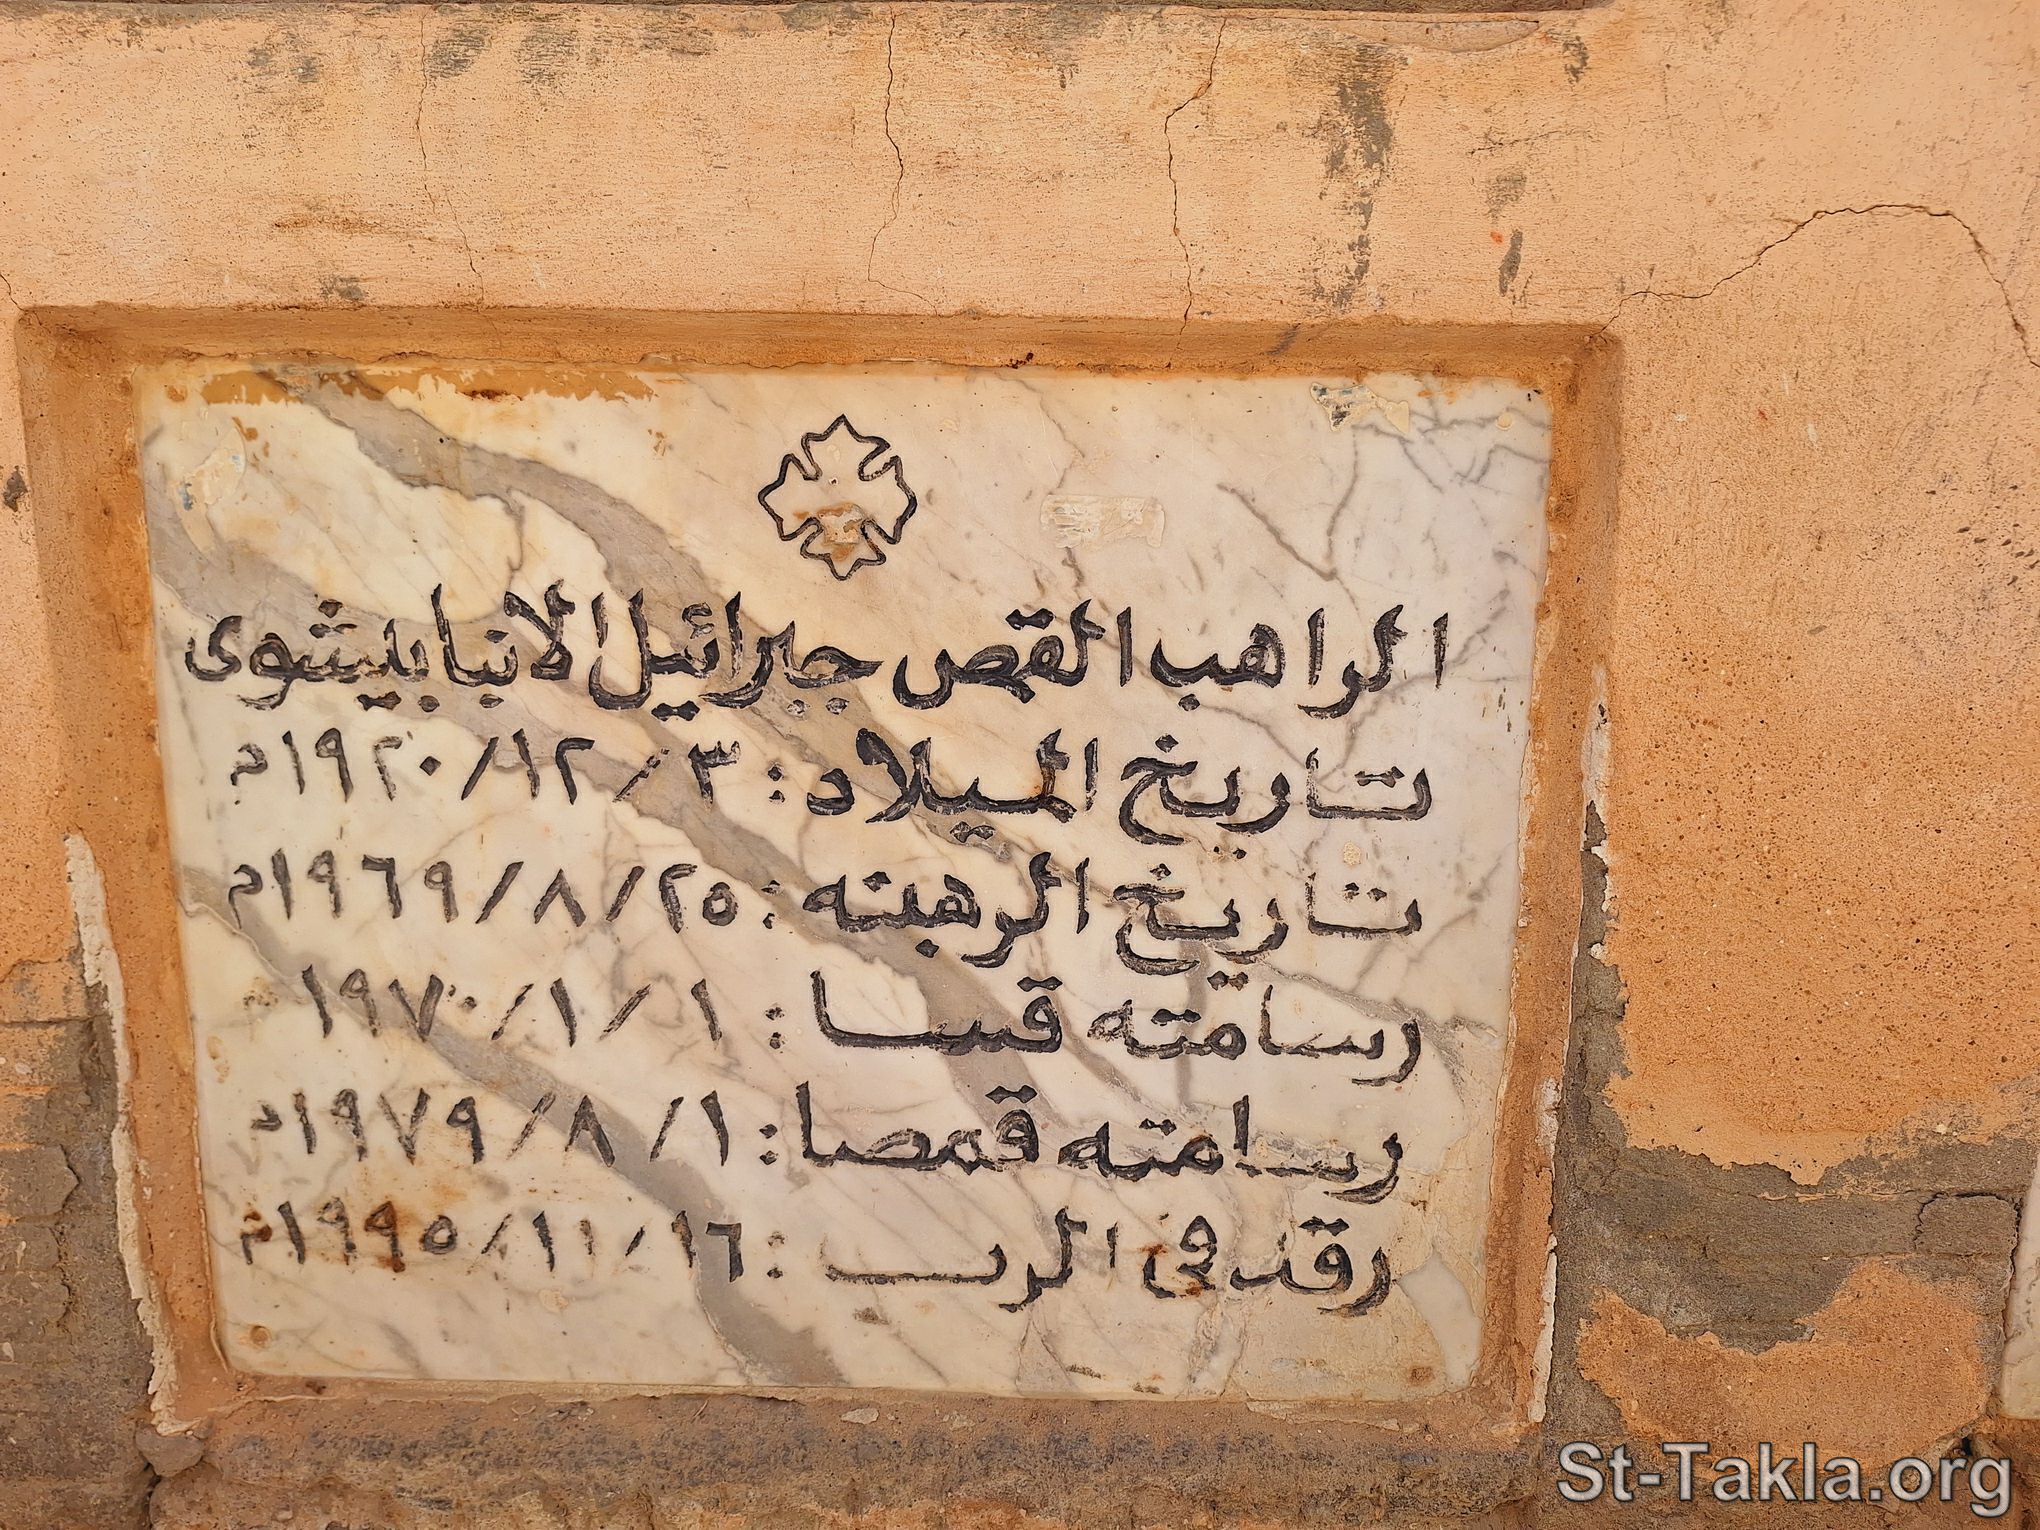 الراهب القمص جبرائيل الانبا بيشوى
تاريخ الميلاد : ٣ / ١٢ / ١٩٢٠م
تاريخ الرهبنه : ٢٥ / ٨ / ١٩٦٩م
رسامته قسا : ١ / ١ / ١٩٧٠
رسامته قمصا : ١ / ٨ / ١٩٧٩م
رقد فى الرب : ١٦ / ١١ / ١٩٩٥م
St-Takla.org